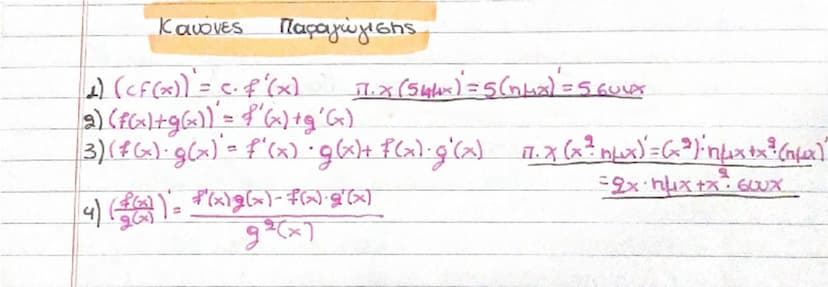 Κανόνες Παραγώγισης
1) (cf(x))' = c·f'(x) π.χ (5ημx)' = 5(ημx)' = 5συνx
2) (f(x)+g(x))' = f'(x)+g'(x)
3) (f(x)·g(x)' = f'(x)·g(x)+f(x)·g'(x) π.χ (x²·ημx)' = (x²)'·ημx+x²·(ημx)'
=2x·ημx+x²·συνx
4) (f(x)/g(x))' = f'(x)g(x)-f(x)·g'(x) / g²(x)